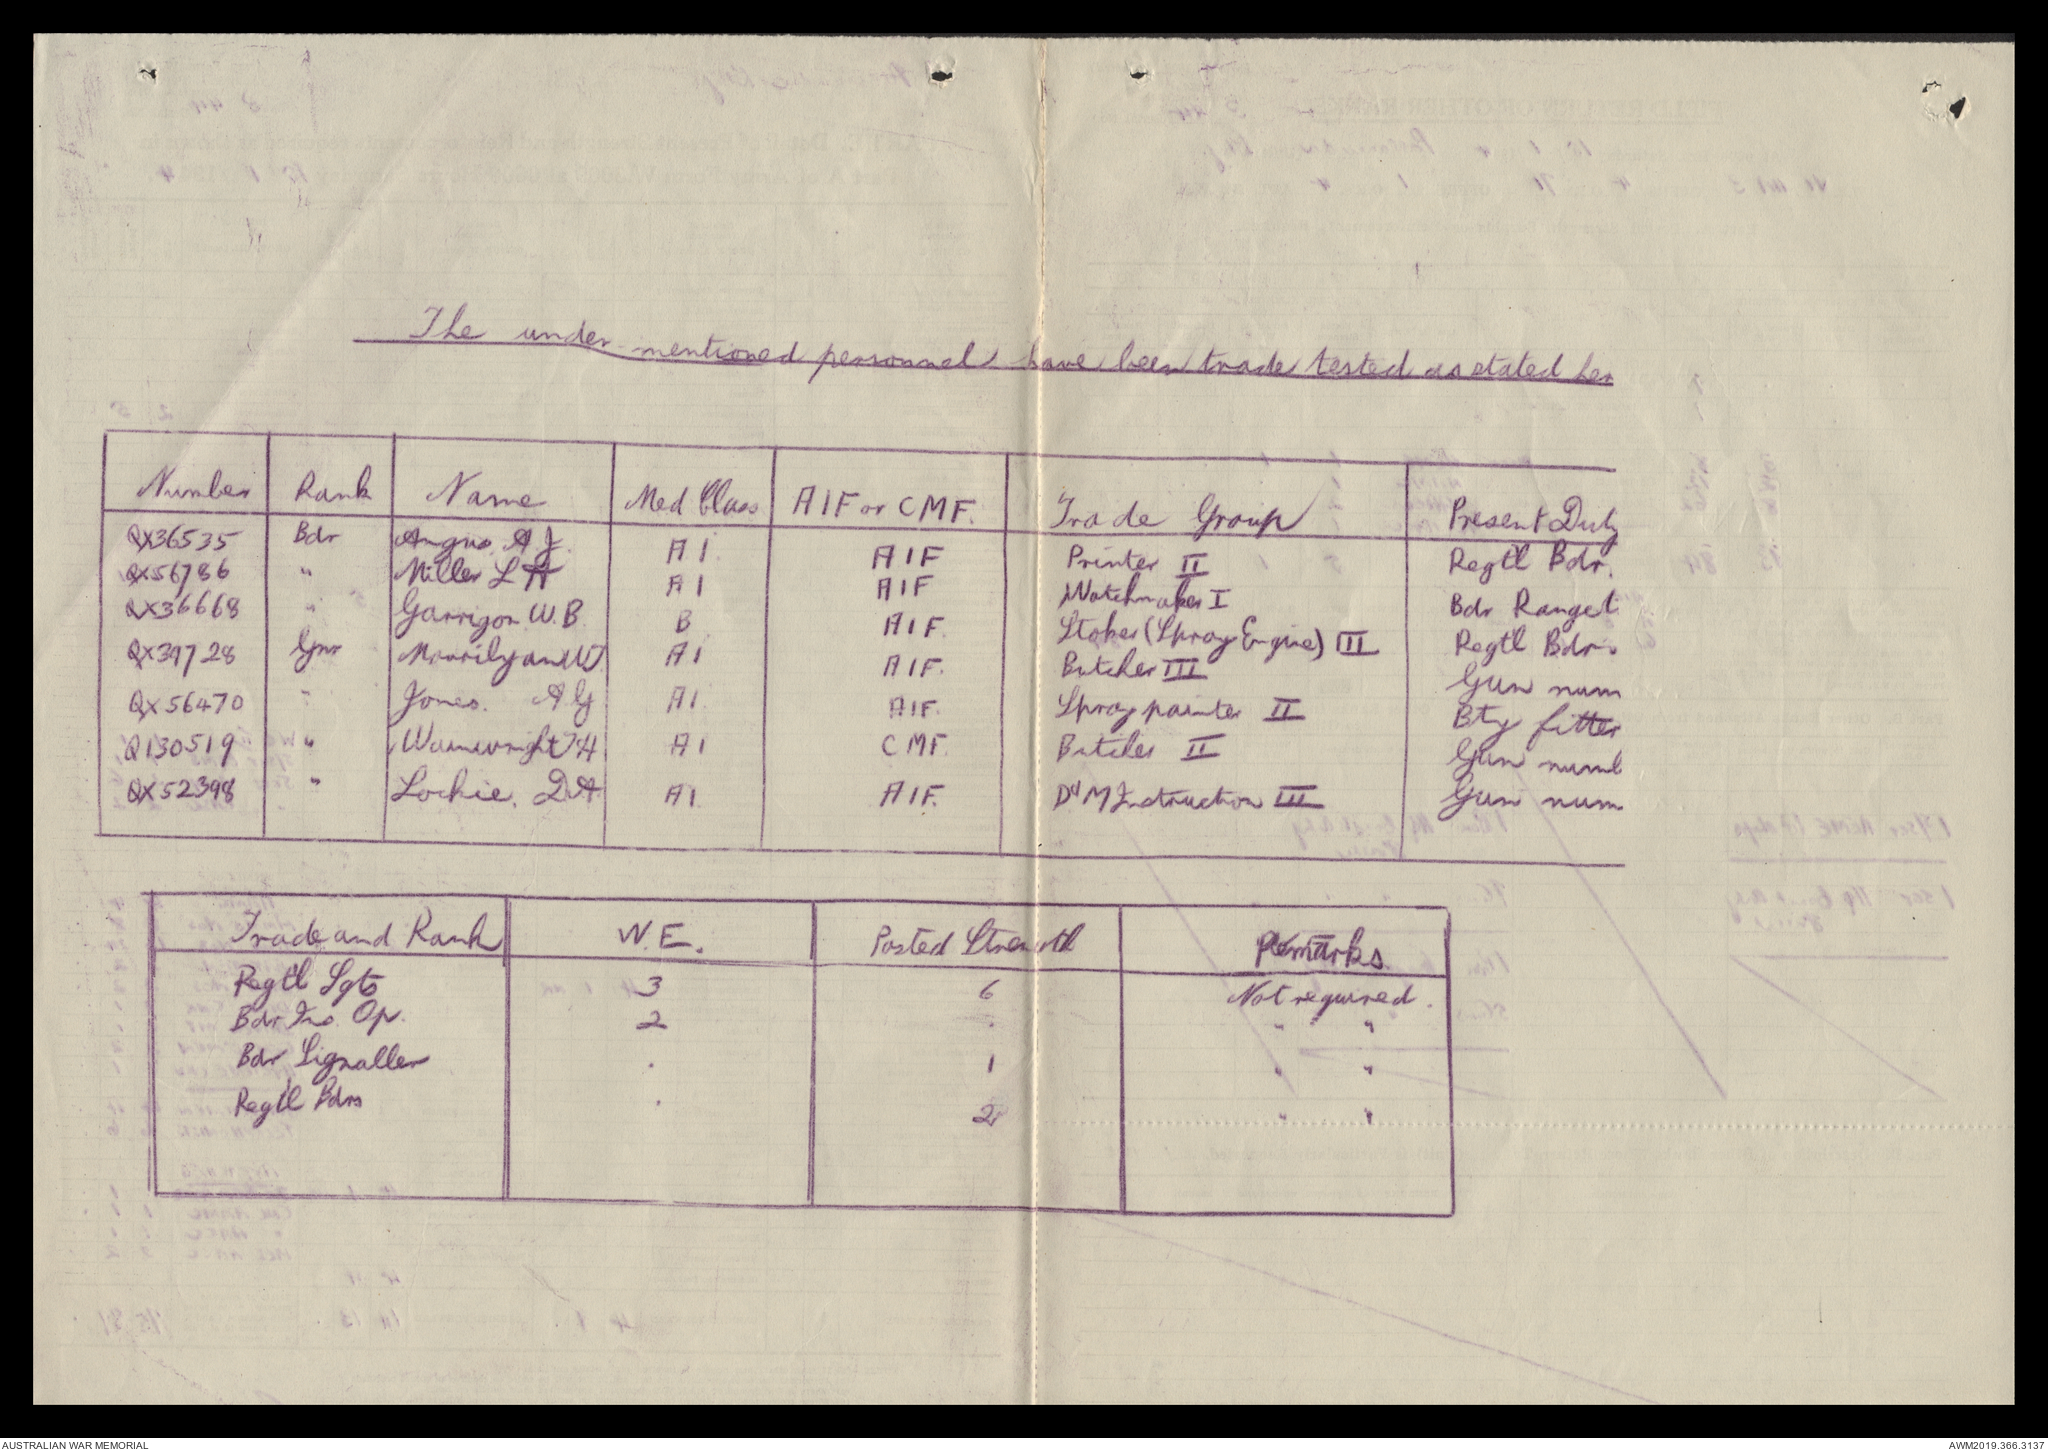 The under-mentioned personnel have been trade tested as stated her
Number Rank Name Med Class AIF or CMF. Trade Group Present Duty
QX36535 Bdr Angus. A J. A1. AIF Printer II Regtl Bdr.
QX56786 " Miller L A A1 AIF Watchmaker I Bdr Ranget
QX36668 " Garrigon W.B. B AIF. Stoker (Spray Engine) III Regtl Bdr.
QX39728 Gnr W A1 AIF. Butcher III Gun num
QX56470 " Jones. A G A1. AIF. Spray painter II Bty fitter
Q130519 " Wainwright H A1 CMF. Butcher II Gun numb
QX52398 " Lockie. D.A A1 AIF. D & M Instruction III Gun num
Trade and Rank W.E. Posted Strength Remarks
Regtl Sgts 3 6 Not required.
Bdr Ins. Op. 2 . " "
Bdr Signaller . 1 " "
Regtl Bdrs . 2 " "
AUSTRALIAN WAR MEMORIAL AWM2019.366.3137